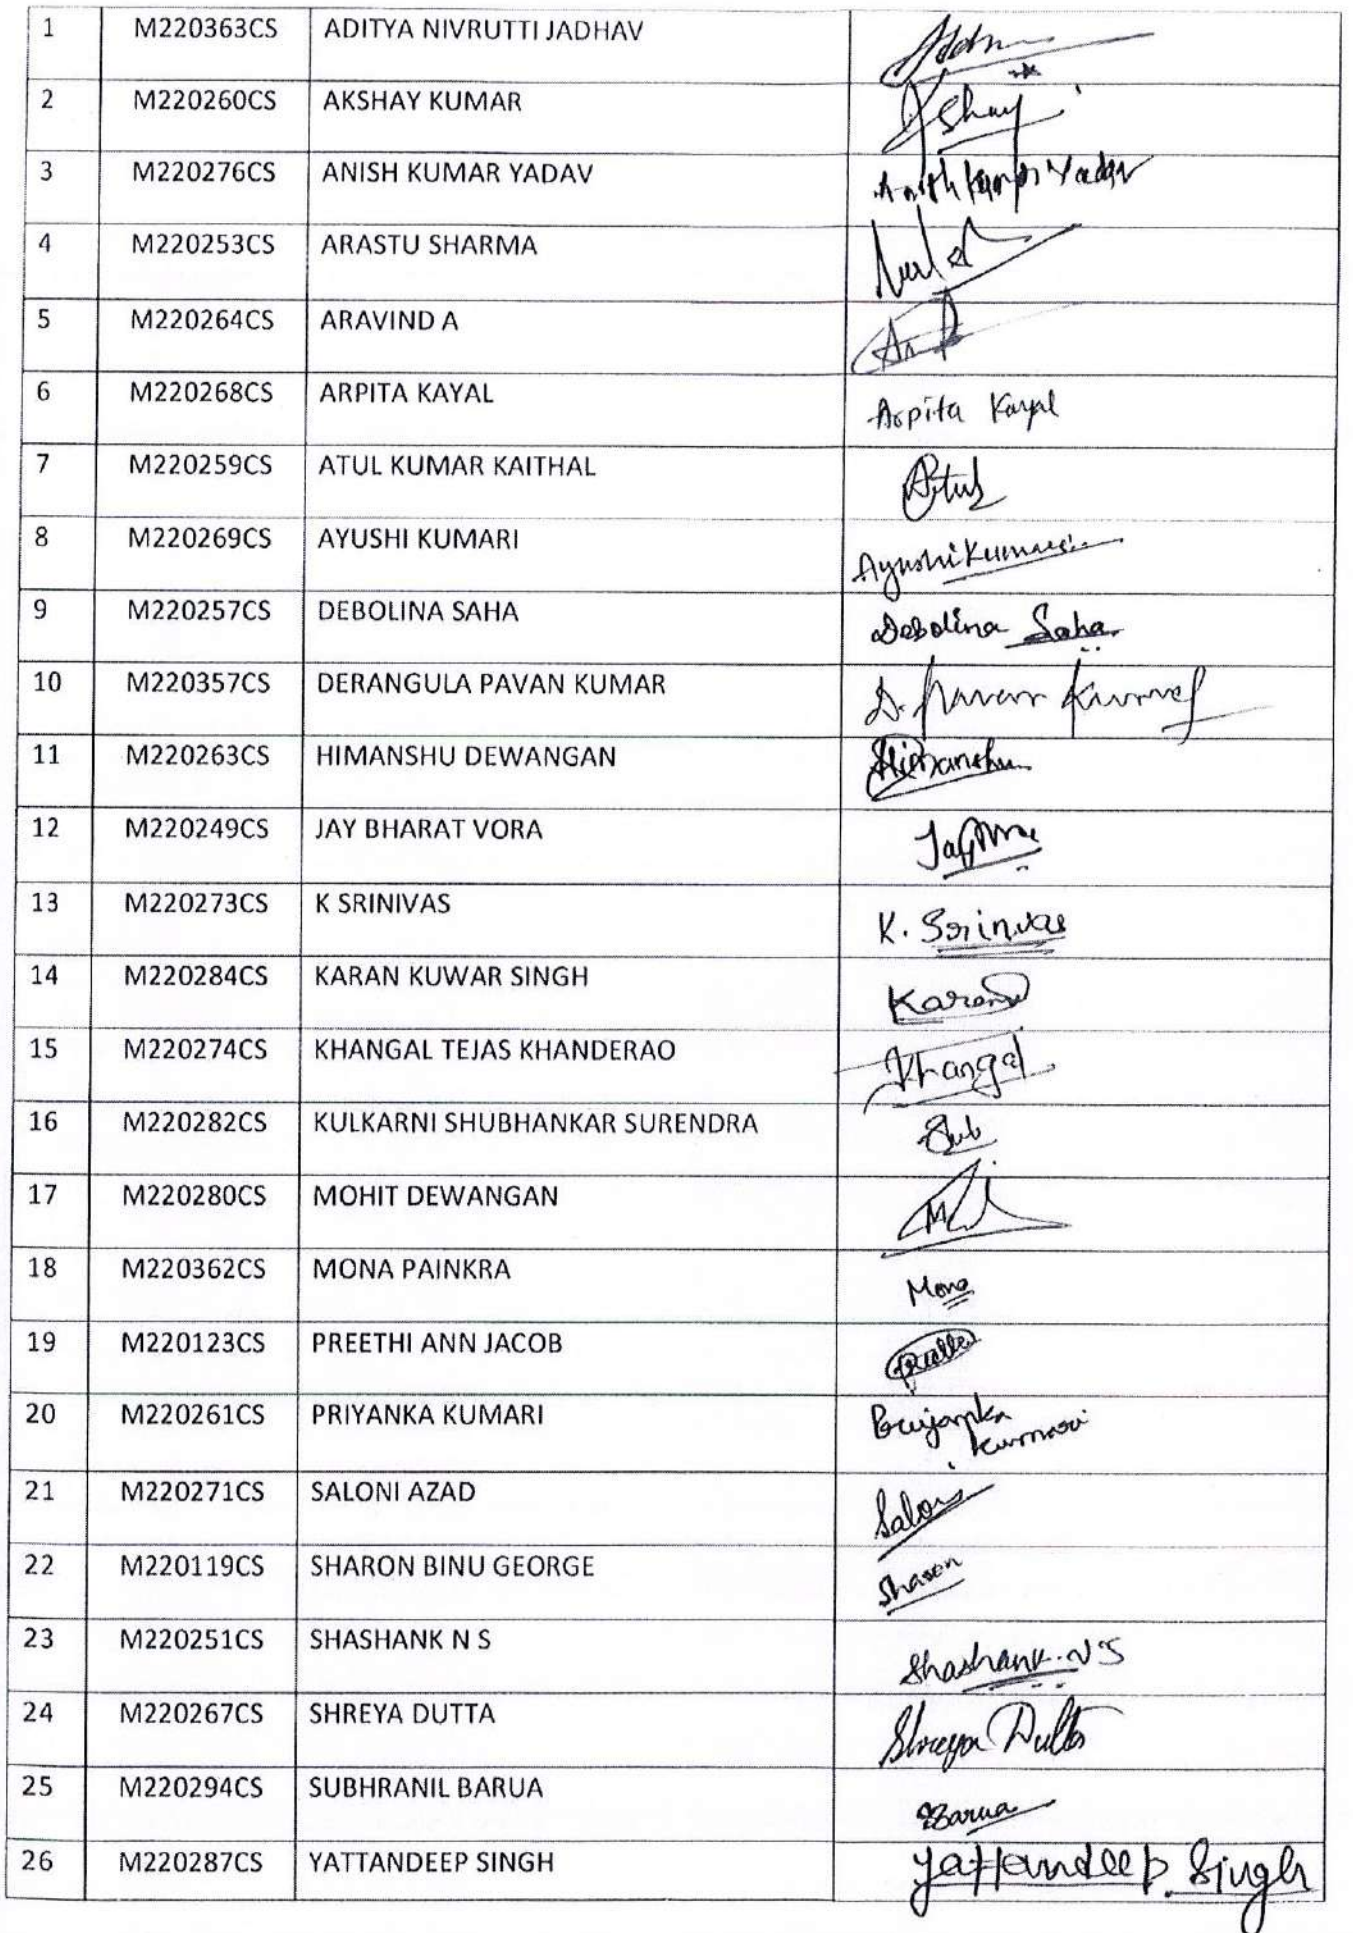 1 M220363CS ADITYA NIVRUTTI JADHAV
2 M220260CS AKSHAY KUMAR
3 M220276CS ANISH KUMAR YADAV Anish Kumar Yadav
4 M220253CS ARASTU SHARMA
5 M220264CS ARAVIND A
6 M220268CS ARPITA KAYAL Arpita Kayal
7 M220259CS ATUL KUMAR KAITHAL Atul
8 M220269CS AYUSHI KUMARI Ayushi Kumari
9 M220257CS DEBOLINA SAHA Debolina Saha
10 M220357CS DERANGULA PAVAN KUMAR D. Pavan Kumar
11 M220263CS HIMANSHU DEWANGAN Himanshu
12 M220249CS JAY BHARAT VORA
13 M220273CS K SRINIVAS K. Srinivas
14 M220284CS KARAN KUWAR SINGH Karan
15 M220274CS KHANGAL TEJAS KHANDERAO Khangal
16 M220282CS KULKARNI SHUBHANKAR SURENDRA
17 M220280CS MOHIT DEWANGAN
18 M220362CS MONA PAINKRA Mona
19 M220123CS PREETHI ANN JACOB
20 M220261CS PRIYANKA KUMARI Priyanka
Kumari
21 M220271CS SALONI AZAD Saloni
22 M220119CS SHARON BINU GEORGE Sharon
23 M220251CS SHASHANK N S Shashank. N S
24 M220267CS SHREYA DUTTA Shreya Dutta
25 M220294CS SUBHRANIL BARUA Barua
26 M220287CS YATTANDEEP SINGH Yattandeep Singh